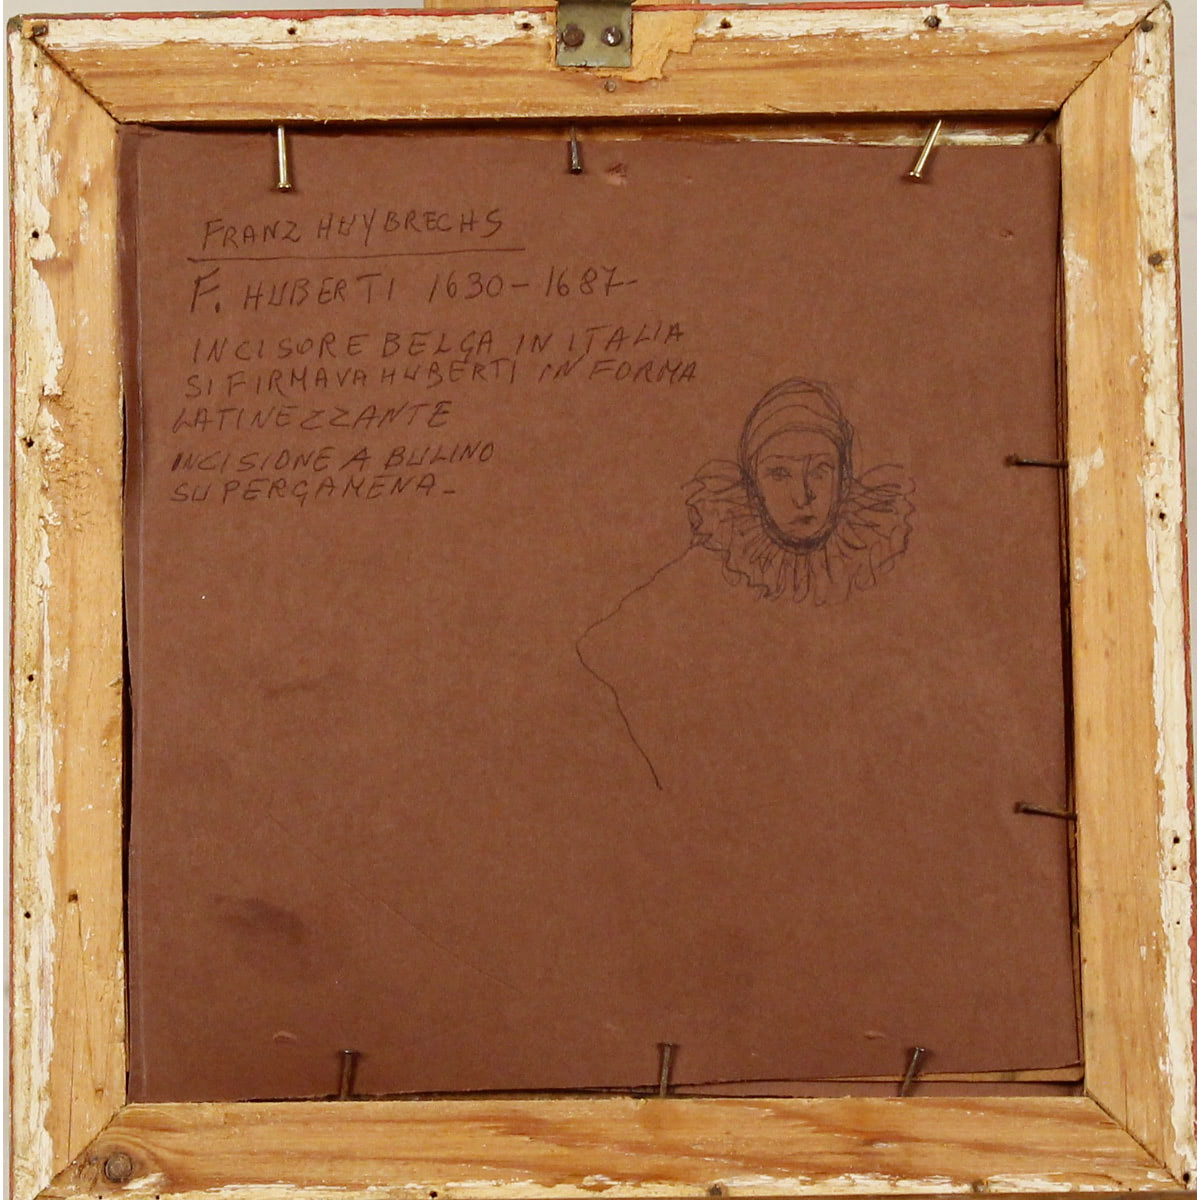 FRANZ HUYBRECHS
F. HUBERTI 1630-1687-
INCISORE BELGA IN ITALIA
SI FIRMAVA HUBERTI IN FORMA
LATINEZZANTE
INCISIONE A BULINO
SU PERGAMENA-